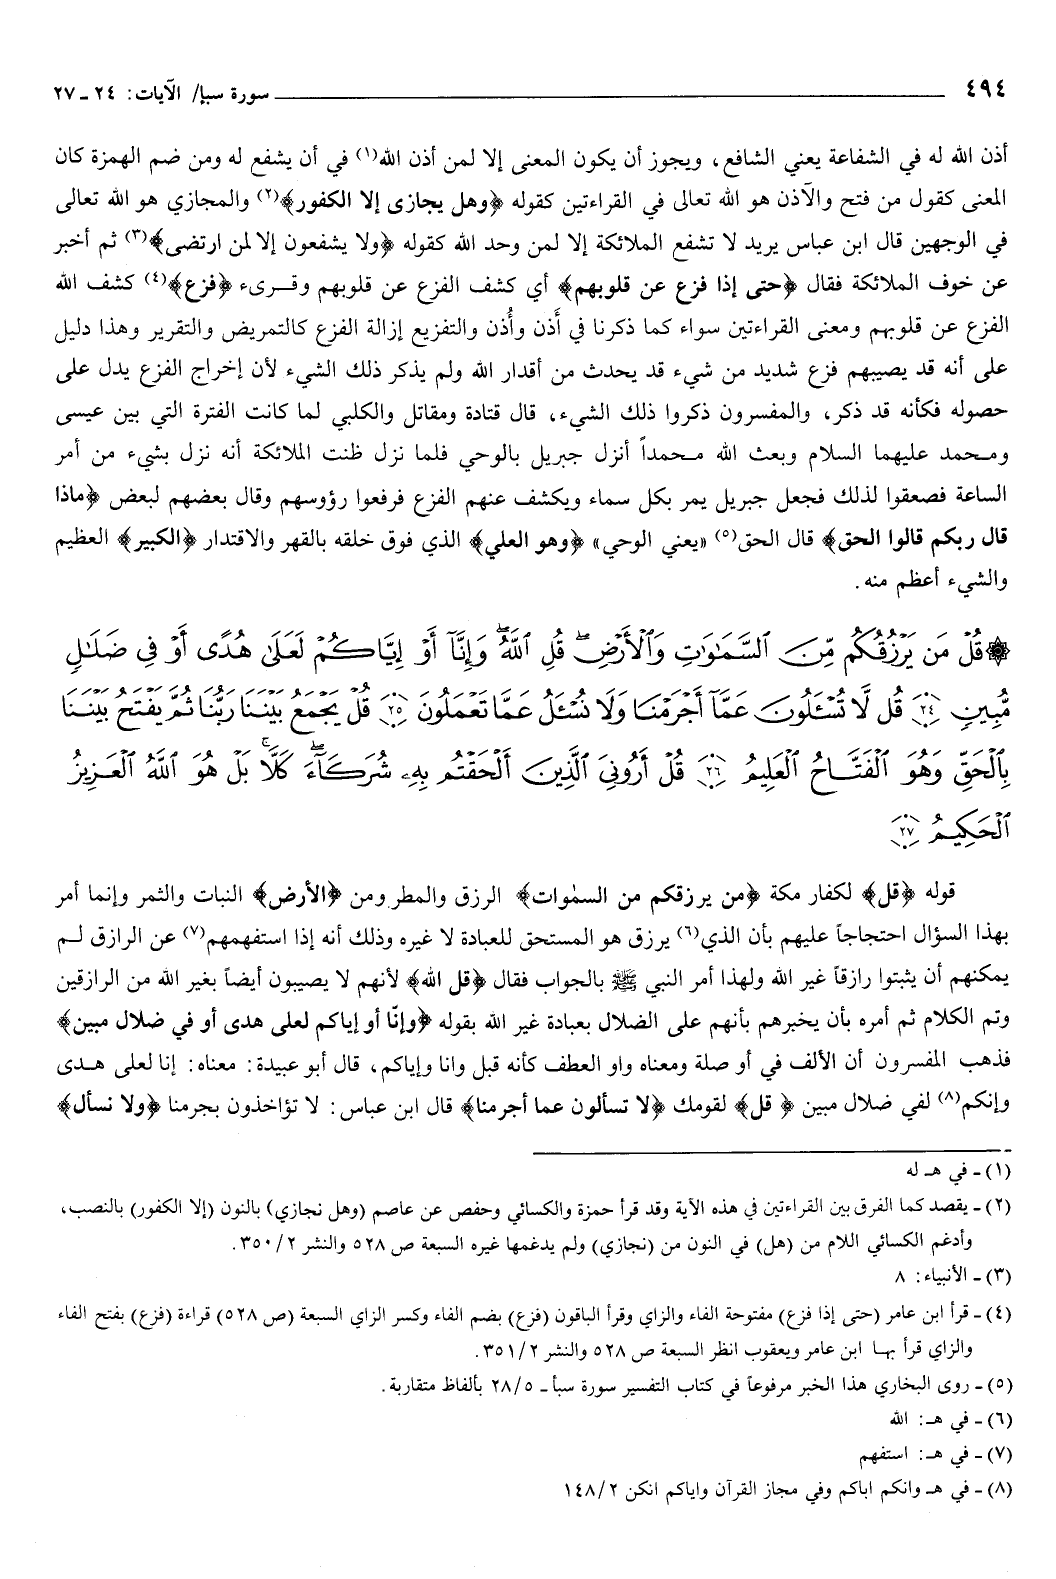 ٤٩٤ ــــــــــ سورة سبإ/ الآيات: ٢٤ ـ ٢٧
أذن الله له في الشفاعة يعني الشافع، ويجوز أن يكون المعنى إلا لمن أذن الله(١) في أن يشفع له ومن ضم الهمزة كان
المعنى كقول من فتح والآذن هو الله تعالى في القراءتين كقوله ﴿وهل يجازى إلا الكفور﴾(٢) والمجازي هو الله تعالى
في الوجهين قال ابن عباس يريد لا تشفع الملائكة إلا لمن وحد الله كقوله ﴿ولا يشفعون إلا لمن ارتضى﴾(٣) ثم أخبر
عن خوف الملائكة فقال ﴿حتى إذا فزع عن قلوبهم﴾ أي كشف الفزع عن قلوبهم وقرىء ﴿فزع﴾(٤) كشف الله
الفزع عن قلوبهم ومعنى القراءتين سواء كما ذكرنا في أَذن وأُذن والتفزيع إزالة الفزع كالتمريض والتقرير وهذا دليل
على أنه قد يصيبهم فزع شديد من شيء قد يحدث من أقدار الله ولم يذكر ذلك الشيء لأن إخراج الفزع يدل على
حصوله فكأنه قد ذكر، والمفسرون ذكروا ذلك الشيء، قال قتادة ومقاتل والكلبي لما كانت الفترة التي بين عيسى
ومحمد عليهما السلام وبعث الله محمداً أنزل جبريل بالوحي فلما نزل ظنت الملائكة أنه نزل بشيء من أمر
الساعة فصعقوا لذلك فجعل جبريل يمر بكل سماء ويكشف عنهم الفزع فرفعوا رؤوسهم وقال بعضهم لبعض ﴿ماذا
قال ربكم قالوا الحق﴾ قال الحق(٥) «يعني الوحي» ﴿وهو العلي﴾ الذي فوق خلقه بالقهر والاقتدار ﴿الكبير﴾ العظيم
والشيء أعظم منه.
۞ قُلْ مَن يَرْزُقُكُم مِّنَ ٱلسَّمَٰوَٰتِ وَٱلْأَرْضِۖ قُلِ ٱللَّهُۖ وَإِنَّآ أَوْ إِيَّاكُمْ لَعَلَىٰ هُدًى أَوْ فِي ضَلَٰلٍ
مُّبِينٍ ٢٤ قُل لَّا تُسْـَٔلُونَ عَمَّآ أَجْرَمْنَا وَلَا نُسْـَٔلُ عَمَّا تَعْمَلُونَ ٢٥ قُلْ يَجْمَعُ بَيْنَنَا رَبُّنَا ثُمَّ يَفْتَحُ بَيْنَنَا
بِٱلْحَقِّ وَهُوَ ٱلْفَتَّاحُ ٱلْعَلِيمُ ٢٦ قُلْ أَرُونِيَ ٱلَّذِينَ أَلْحَقْتُم بِهِۦ شُرَكَآءَۖ كَلَّاۚ بَلْ هُوَ ٱللَّهُ ٱلْعَزِيزُ
ٱلْحَكِيمُ ٢٧
قوله ﴿قل﴾ لكفار مكة ﴿من يرزقكم من السمٰوات﴾ الرزق والمطر ومن ﴿الأرض﴾ النبات والثمر وإنما أمر
بهذا السؤال احتجاجاً عليهم بأن الذي(٦) يرزق هو المستحق للعبادة لا غيره وذلك أنه إذا استفهمهم(٧) عن الرازق لم
يمكنهم أن يثبتوا رازقاً غير الله ولهذا أمر النبي ﷺ بالجواب فقال ﴿قل الله﴾ لأنهم لا يصيبون أيضاً بغير الله من الرازقين
وتم الكلام ثم أمره بأن يخبرهم بأنهم على الضلال بعبادة غير الله بقوله ﴿وإنّا أو إياكم لعلى هدى أو في ضلال مبين﴾
فذهب المفسرون أن الألف في أو صلة ومعناه واو العطف كأنه قبل وانا وإياكم، قال أبو عبيدة: معناه: إنا لعلى هدى
وإنكم(٨) لفي ضلال مبين ﴿ قل﴾ لقومك ﴿لا تسألون عما أجرمنا﴾ قال ابن عباس: لا تؤاخذون بجرمنا ﴿ولا نسأل﴾
(١) ـ في هـ له
(٢) ـ يقصد كما الفرق بين القراءتين في هذه الآية وقد قرأ حمزة والكسائي وحفص عن عاصم (وهل نجازي) بالنون (إلا الكفور) بالنصب،
وأدغم الكسائي اللام من (هل) في النون من (نجازي) ولم يدغمها غيره السبعة ص ٥٢٨ والنشر ٢/ ٣٥٠.
(٣) ـ الأنبياء: ٨
(٤) ـ قرأ ابن عامر (حتى إذا فزع) مفتوحة الفاء والزاي وقرأ الباقون (فزع) بضم الفاء وكسر الزاي السبعة (ص ٥٢٨) قراءة (فزع) بفتح الفاء
والزاي قرأ بها ابن عامر ويعقوب انظر السبعة ص ٥٢٨ والنشر ٢/ ٣٥١.
(٥) ـ روى البخاري هذا الخبر مرفوعاً في كتاب التفسير سورة سبأ ـ ٥/ ٢٨ بألفاظ متقاربة.
(٦) ـ في هـ: الله
(٧) ـ في هـ: استفهم
(٨) ـ في هـ وانكم اباكم وفي مجاز القرآن واياكم انكن ٢/ ١٤٨